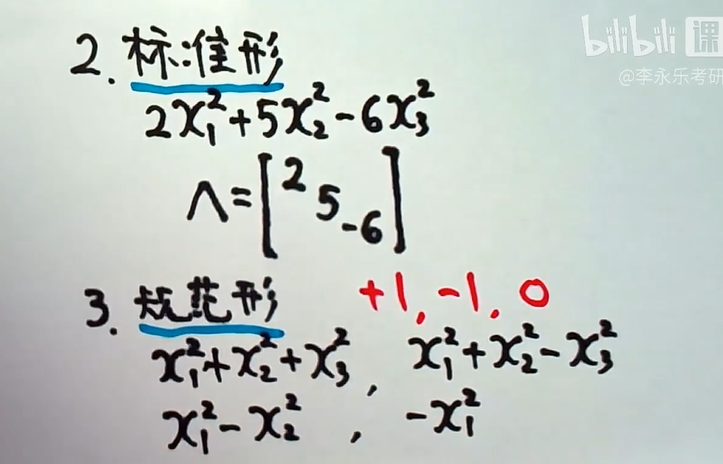 bilibili 课
@李永乐考研
2. 标准形
2x₁²+5x₂²-6x₃²
Λ=[2 5 -6]
3. 规范形 +1, -1, 0
x₁²+x₂²+x₃², x₁²+x₂²-x₃²
x₁²-x₂², -x₁²